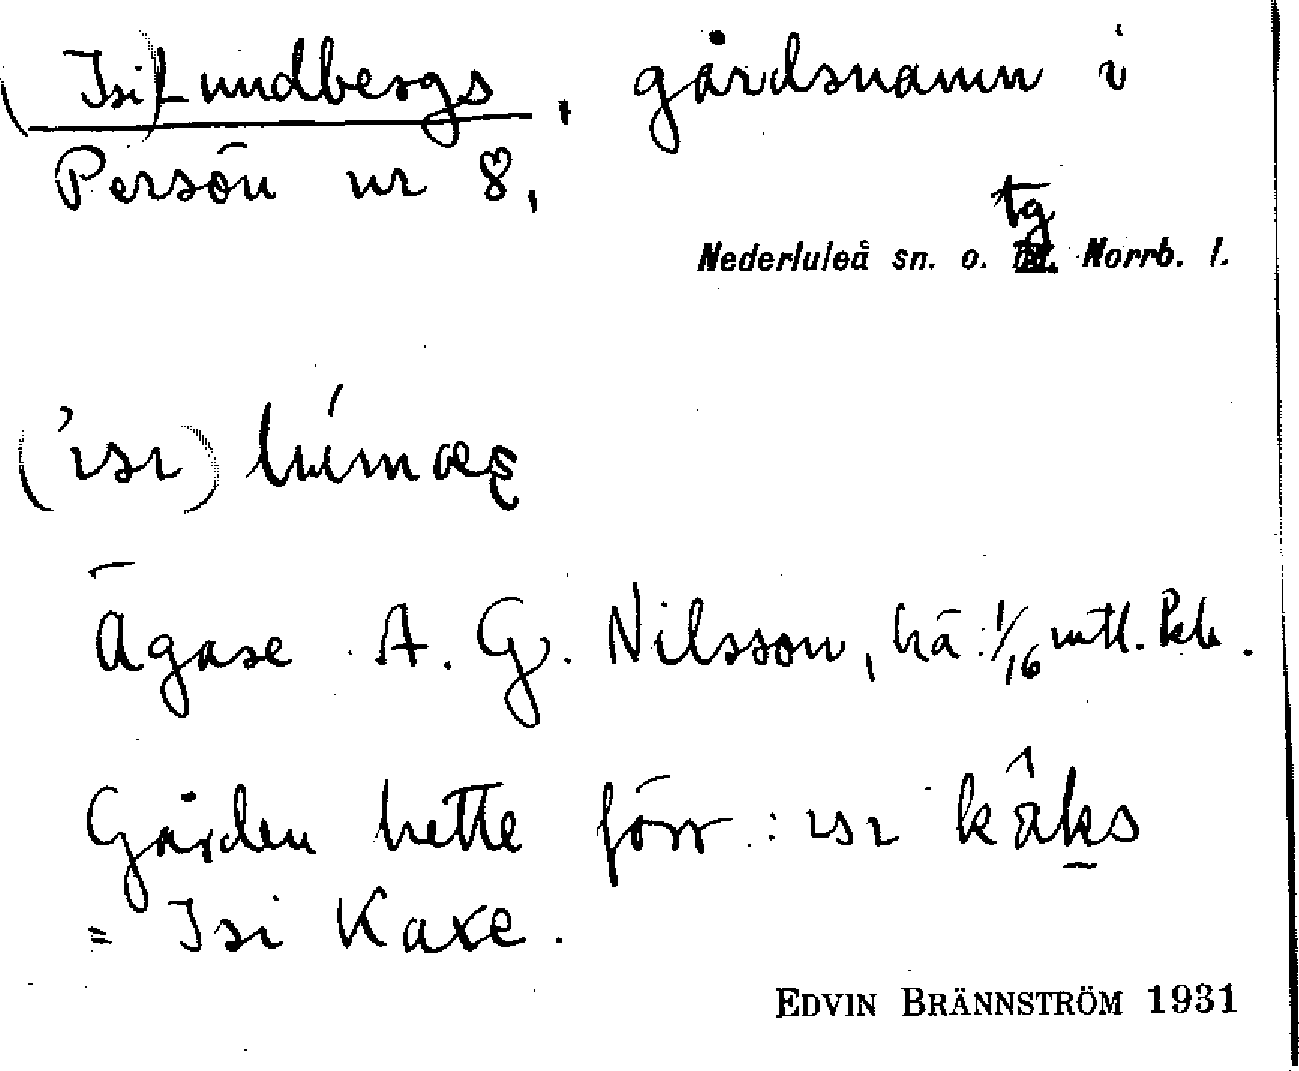 (Isi) Lundbergs, gårdsnamn i
Persön nr 8,
tg
Nederluleå sn. o. Norrb. l.
Ägare A. G. Nilsson, hä: 1/16 mtl.
Gården hette förr: ısı kâks
= Isi Kaxe.
EDVIN BRÄNNSTRÖM 1931